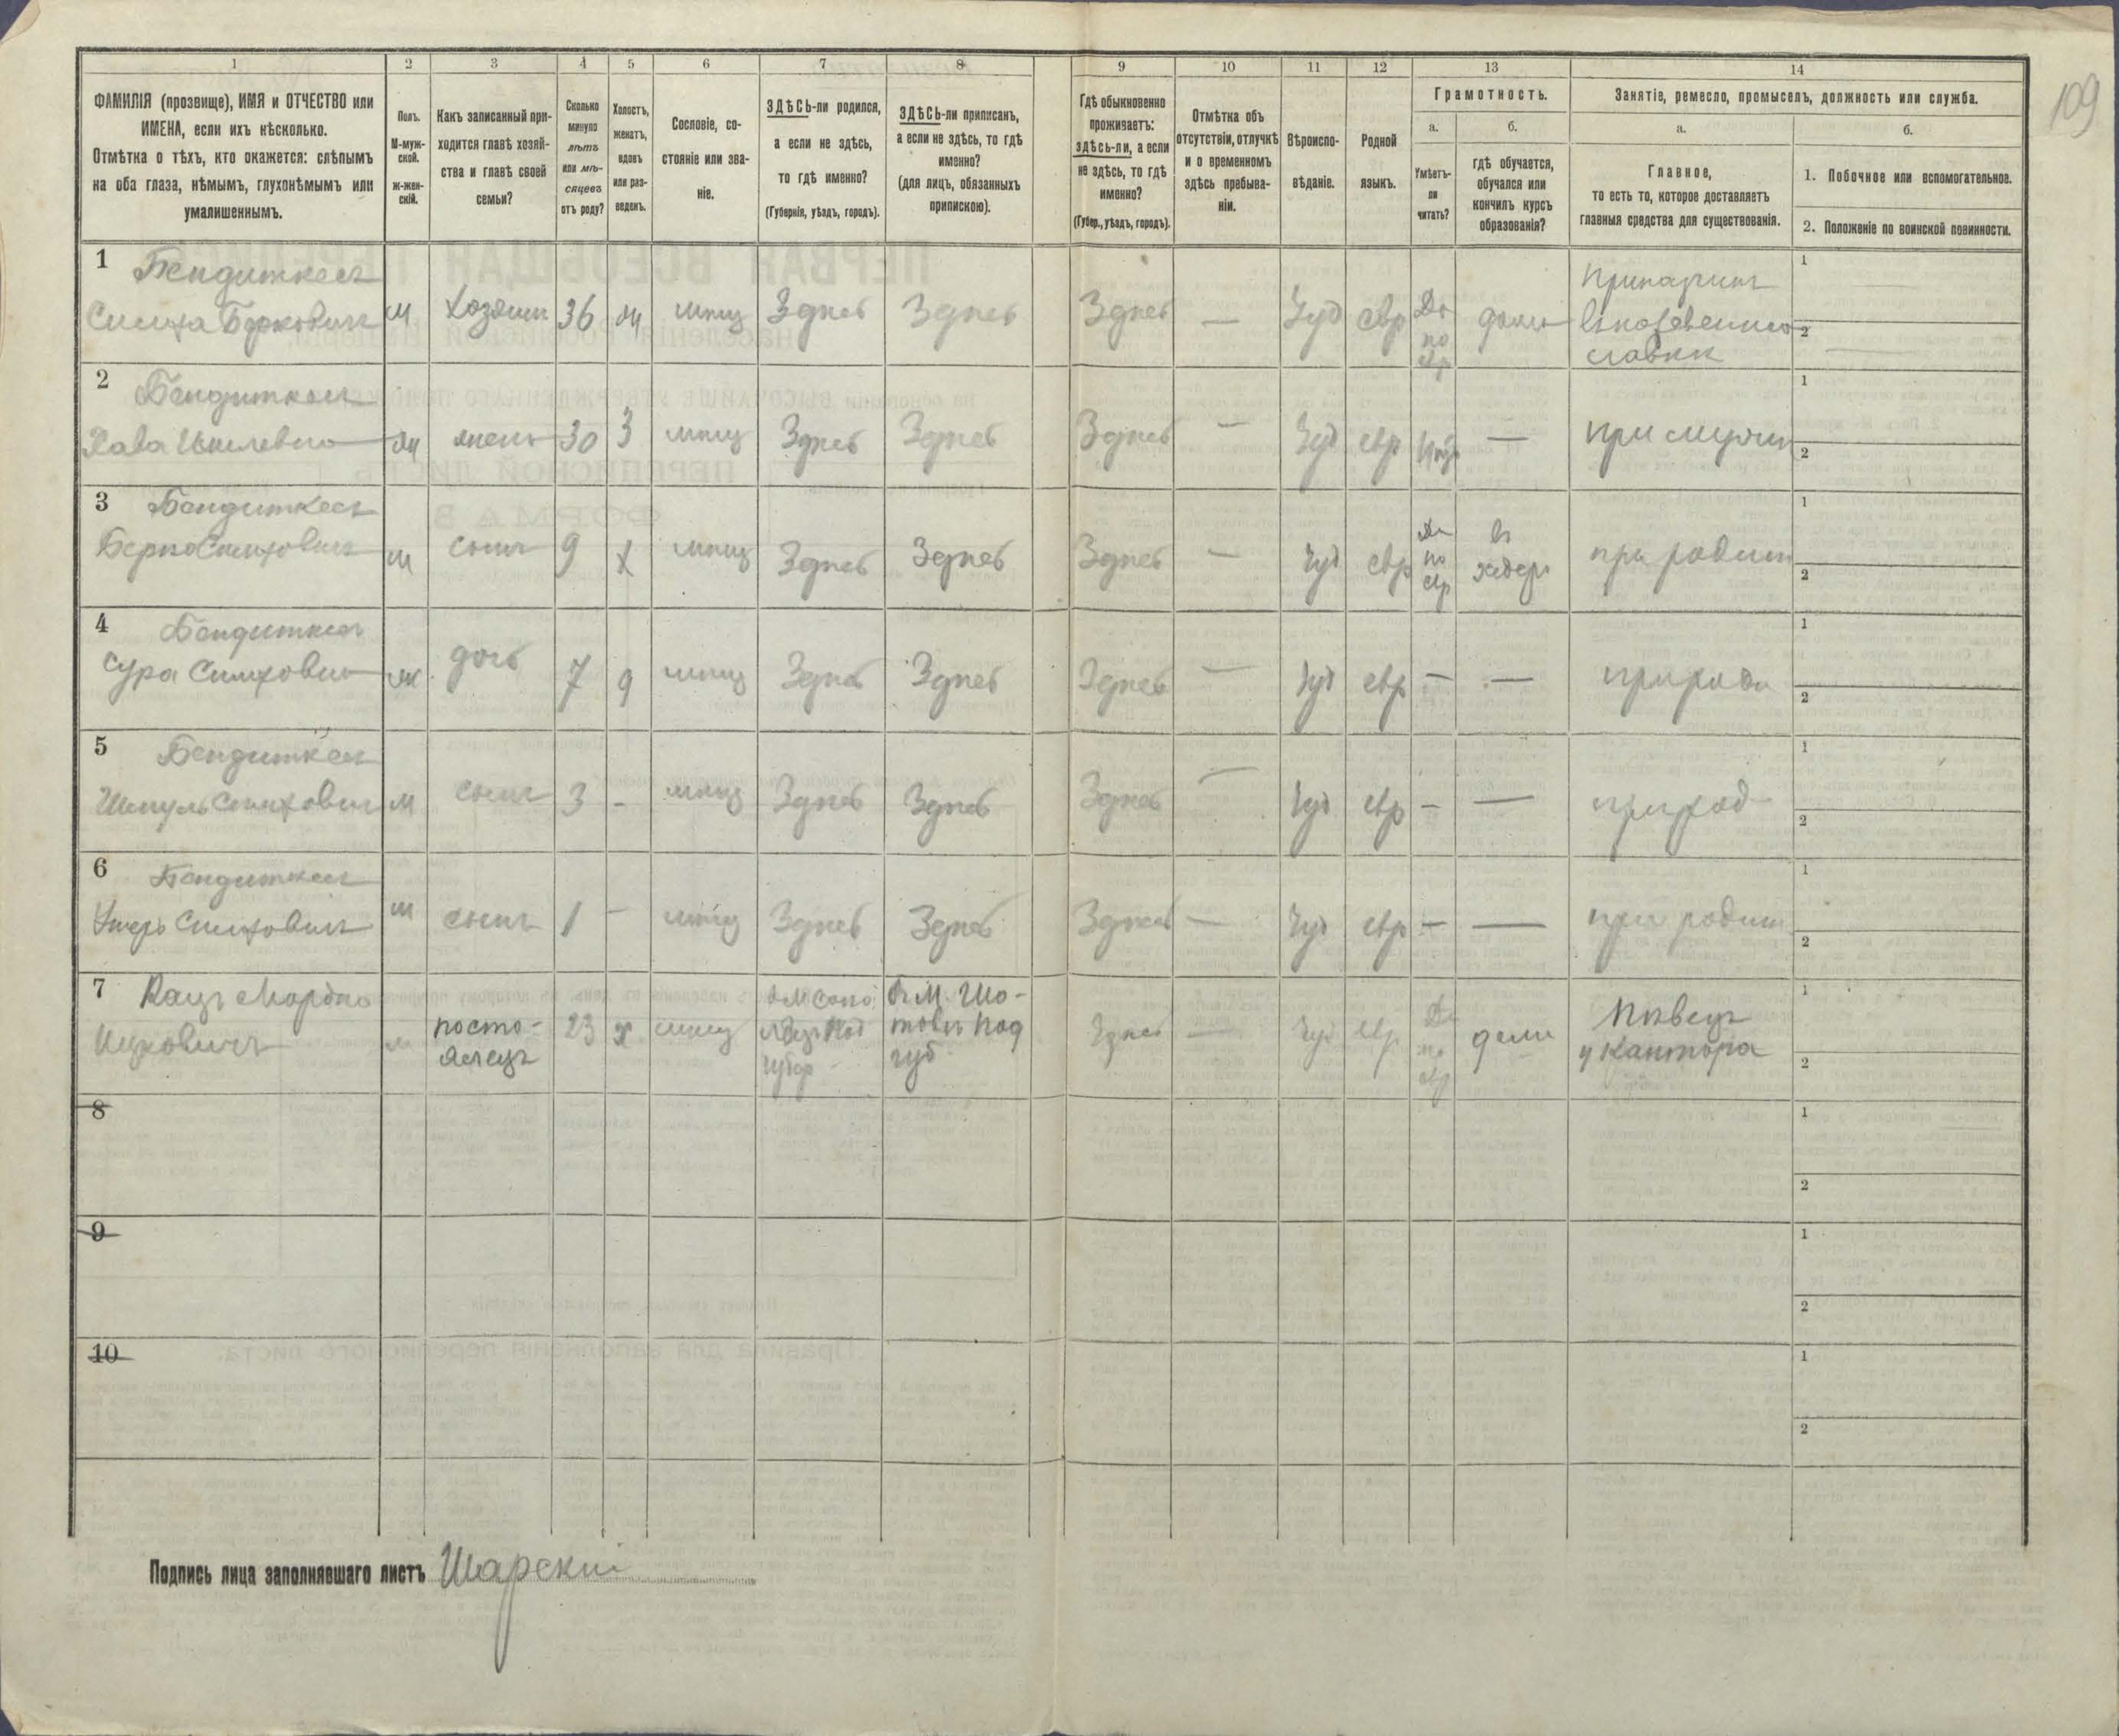 109
1
2
3
4
5
6
7
8
9
10
11
12
13
14
ФАМИЛІЯ (прозвище), ИМЯ и ОТЧЕСТВО или
ИМЕНА, если ихъ нѣсколько.
Отмѣтка о тѣхъ, кто окажется: слѣпымъ
на оба глаза, нѣмымъ, глухонѣмымъ или
умалишеннымъ.
Полъ.
М-муж-
ской.
ж-жен-
скій.
Какъ записанный при-
ходится главѣ хозяй-
ства и главѣ своей
семьи?
Сколько
минуло
лѣтъ
или мѣ-
сяцевъ
отъ роду?
Холостъ,
женатъ,
вдовъ
или раз-
веденъ.
Сословіе, со-
стояніе или зва-
ніе.
ЗДѢСЬ-ли родился,
а если не здѣсь,
то гдѣ именно?
(Губернія, уѣздъ, городъ).
ЗДѢСЬ-ли приписанъ,
а если не здѣсь, то гдѣ
именно?
(для лицъ, обязанныхъ
припискою).
Гдѣ обыкновенно
проживаетъ:
здѣсь-ли, а если
не здѣсь, то гдѣ
именно?
(Губер., уѣздъ, городъ).
Отмѣтка объ
отсутствіи, отлучкѣ
и о временномъ
здѣсь пребыва-
ніи.
Вѣроиспо-
вѣданіе.
Родной
языкъ.
Грамотность.
а.
Умѣетъ-
ли
читать?
б.
гдѣ обучается,
обучался или
кончилъ курсъ
образованія?
Занятіе, ремесло, промыселъ, должность или служба.
а.
Главное,
то есть то, которое доставляетъ
главныя средства для существованія.
б.
1. Побочное или вспомогательное.
2. Положеніе по воинской повинности.
1 Бендиткесъ
Симха Берковичъ м Хозяин 36 ж мѣщ Здѣсь Здѣсь Здѣсь — Іуд евр Да по евр дома
лавки
1
2
2 Бендиткесъ
Хава жена 30 З мѣщ Здѣсь Здѣсь Здѣсь — Іуд евр — при мужѣ
1
2
3 Бендиткесъ
Берко Симховичъ м сынъ 9 х мѣщ Здѣсь Здѣсь Здѣсь — Іуд евр Да по евр въ хедерѣ при родит
1
2
4 Бендиткесъ
Сура Симховна ж дочь 7 д мѣщ Здѣсь Здѣсь Здѣсь — Іуд евр — — при роди
1
2
5 Бендиткесъ
Шмуль Симхович м сынъ 3 - мѣщ Здѣсь Здѣсь Здѣсь — Іуд евр — — при род
1
2
6 Бендиткесъ
Симховичъ м сынъ 1 — мѣщ Здѣсь Здѣсь Здѣсь — Іуд евр — — при родит
1
2
7 Кацъ Мордко
Ицковичъ м посто-
ялецъ 23 х мѣщ губер В М. Шо-
товъ Под
губ Здѣсь — Іуд евр Да по евр дома Пѣвецъ
у Кантора
1
2
8
1
2
9
1
2
10
1
2
Подпись лица заполнявшаго листъ Шарскій